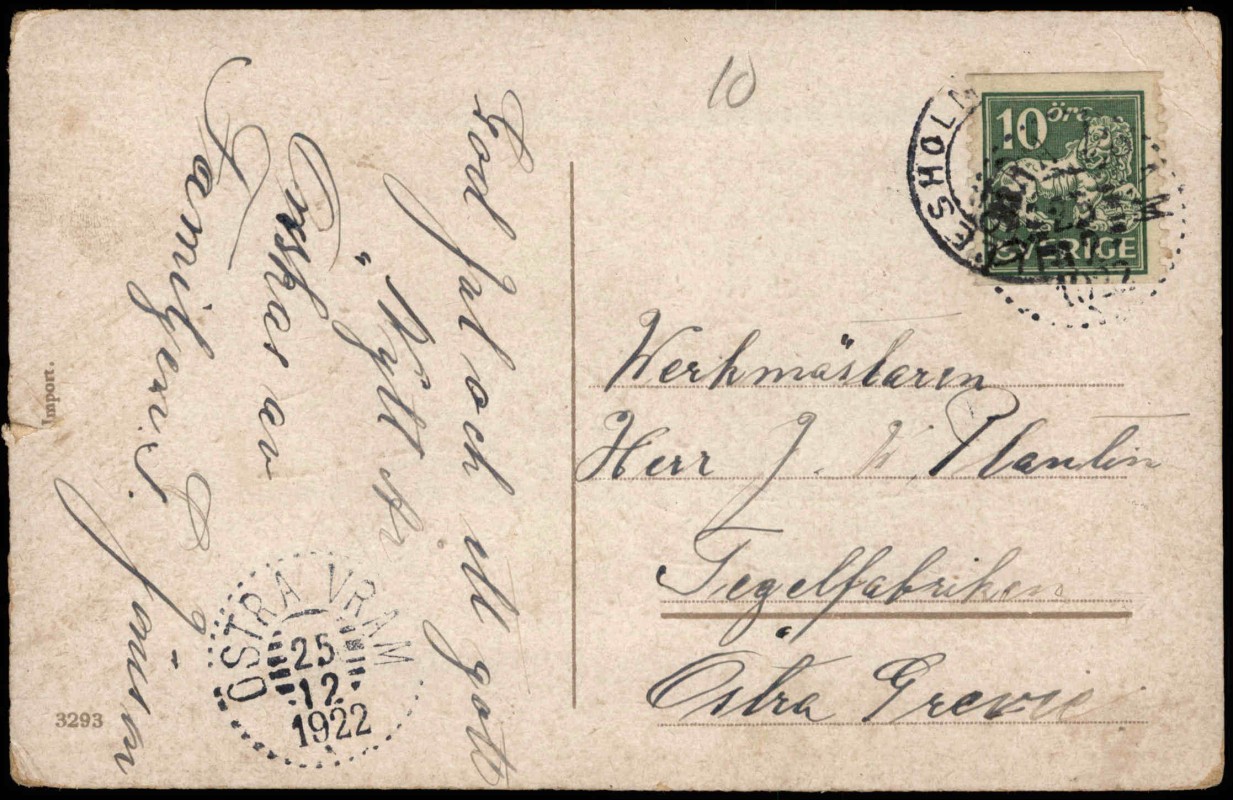 10
10 öre
SVERIGE
ESHOLM
God Jul och ett gott
"Nytt år
Önskas av
Familjen
Import.
3293
ÖSTRA VRAM
25
12
1922
Werkmästaren
Herr J.
Tegelfabriken
Östra Grevie